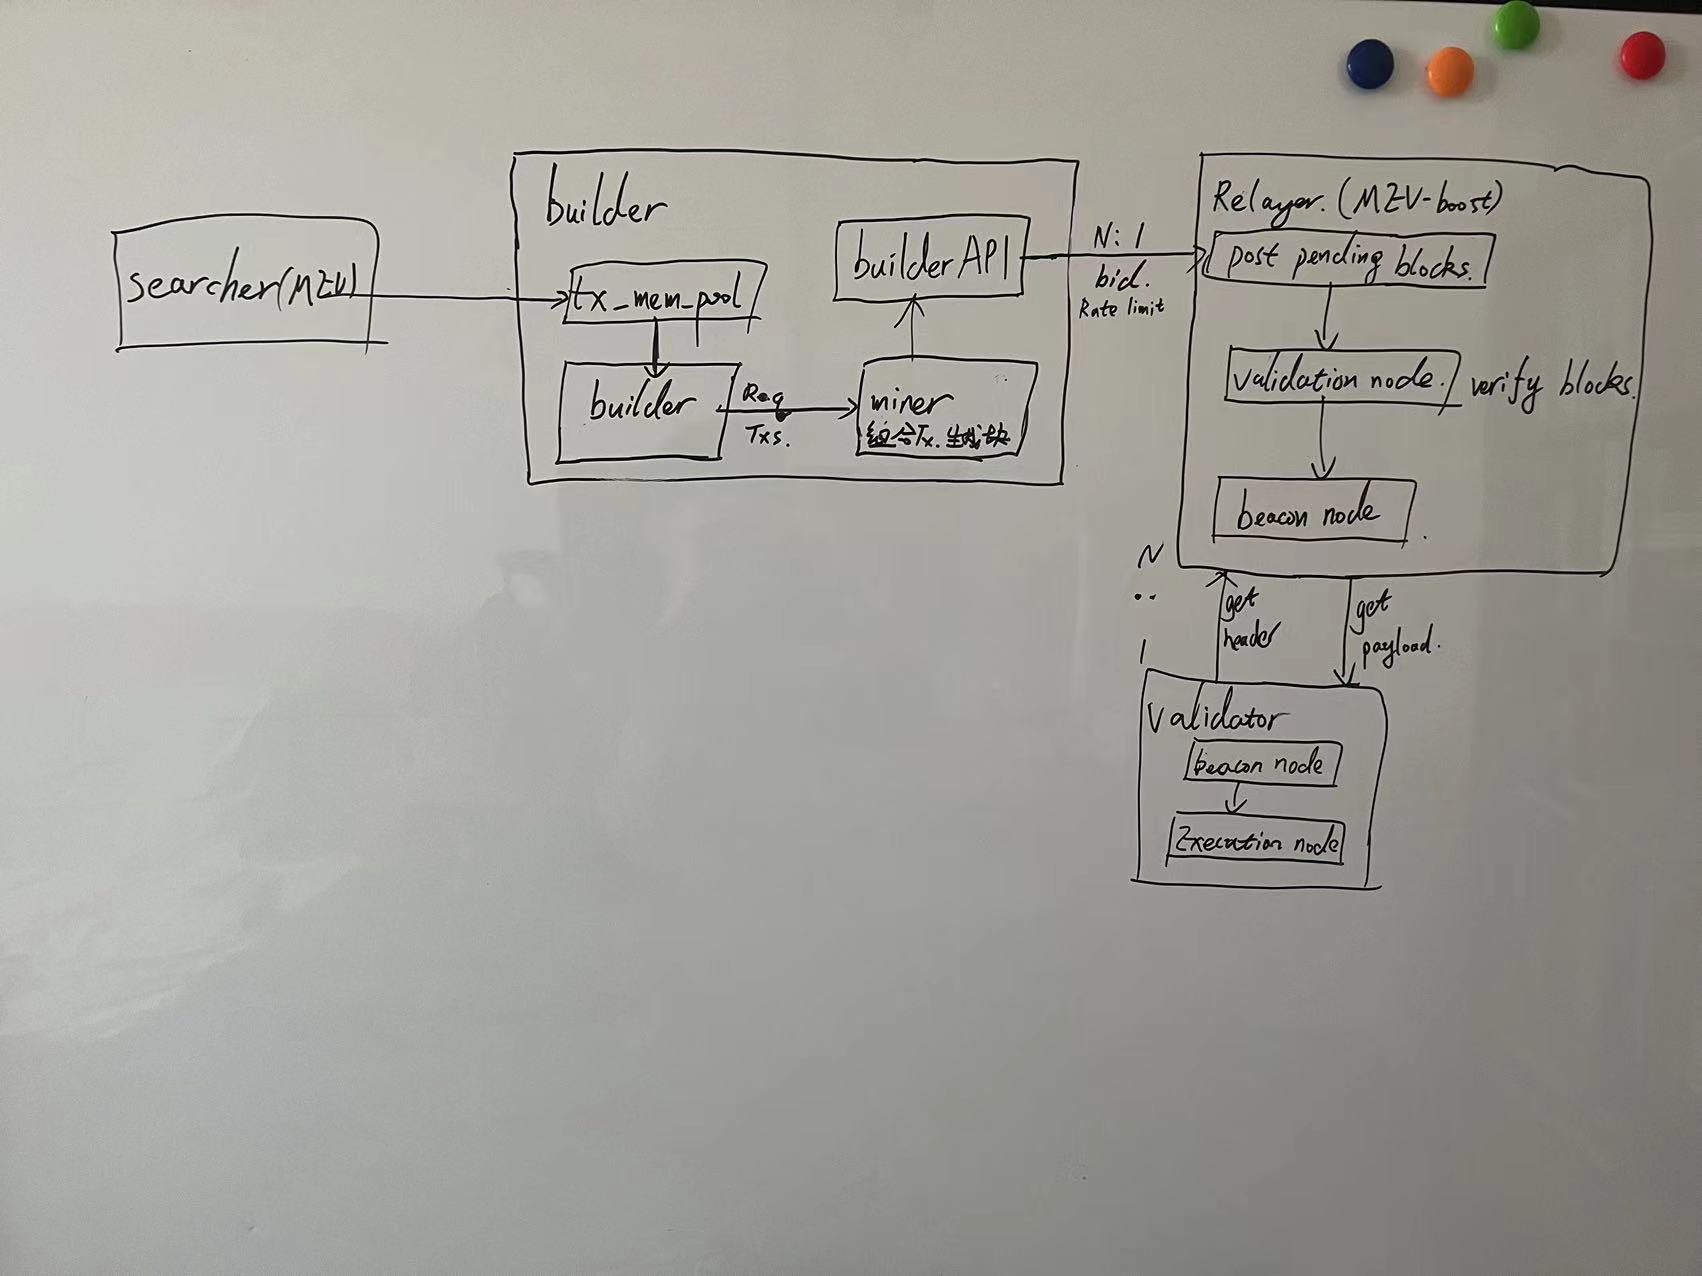 searcher(MEV)
builder
tx_mem_pool
builder
Req
Txs.
miner
组合Tx.生成块
builderAPI
N:1
bid.
Rate limit
Relayer.(MEV-boost)
post pending blocks.
validation node.
verify blocks.
beacon node
N
:
1
get
header
get
payload.
Validator
beacon node
Execution node